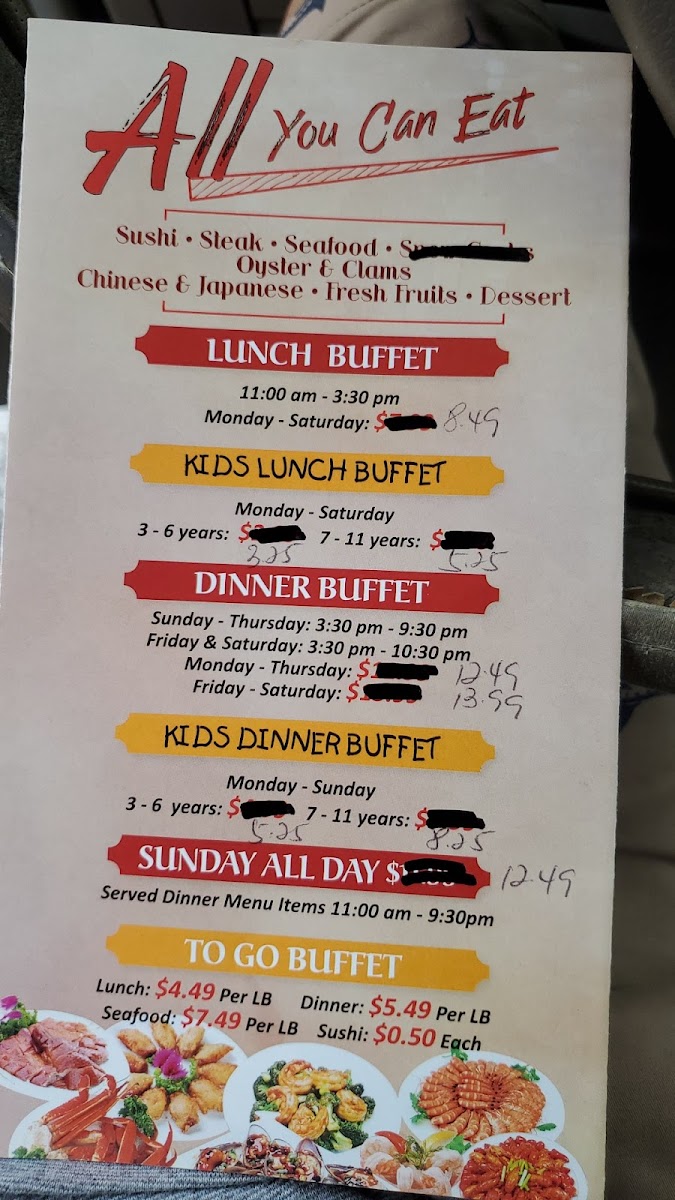 All You Can Eat
Sushi • Steak • Seafood •
Oyster & Clams
Chinese & Japanese • Fresh Fruits • Dessert
LUNCH BUFFET
11:00 am - 3:30 pm
Monday - Saturday: $ 8.49
KIDS LUNCH BUFFET
Monday - Saturday
3 - 6 years: $ 7 - 11 years: $
3.25 5.25
DINNER BUFFET
Sunday - Thursday: 3:30 pm - 9:30 pm
Friday & Saturday: 3:30 pm - 10:30 pm
Monday - Thursday: $ 12.49
Friday - Saturday: $ 13.99
KIDS DINNER BUFFET
Monday - Sunday
3 - 6 years: $ 7 - 11 years: $
5.25 8.25
SUNDAY ALL DAY $ 12.49
Served Dinner Menu Items 11:00 am - 9:30pm
TO GO BUFFET
Lunch: $4.49 Per LB Dinner: $5.49 Per LB
Seafood: $7.49 Per LB Sushi: $0.50 Each